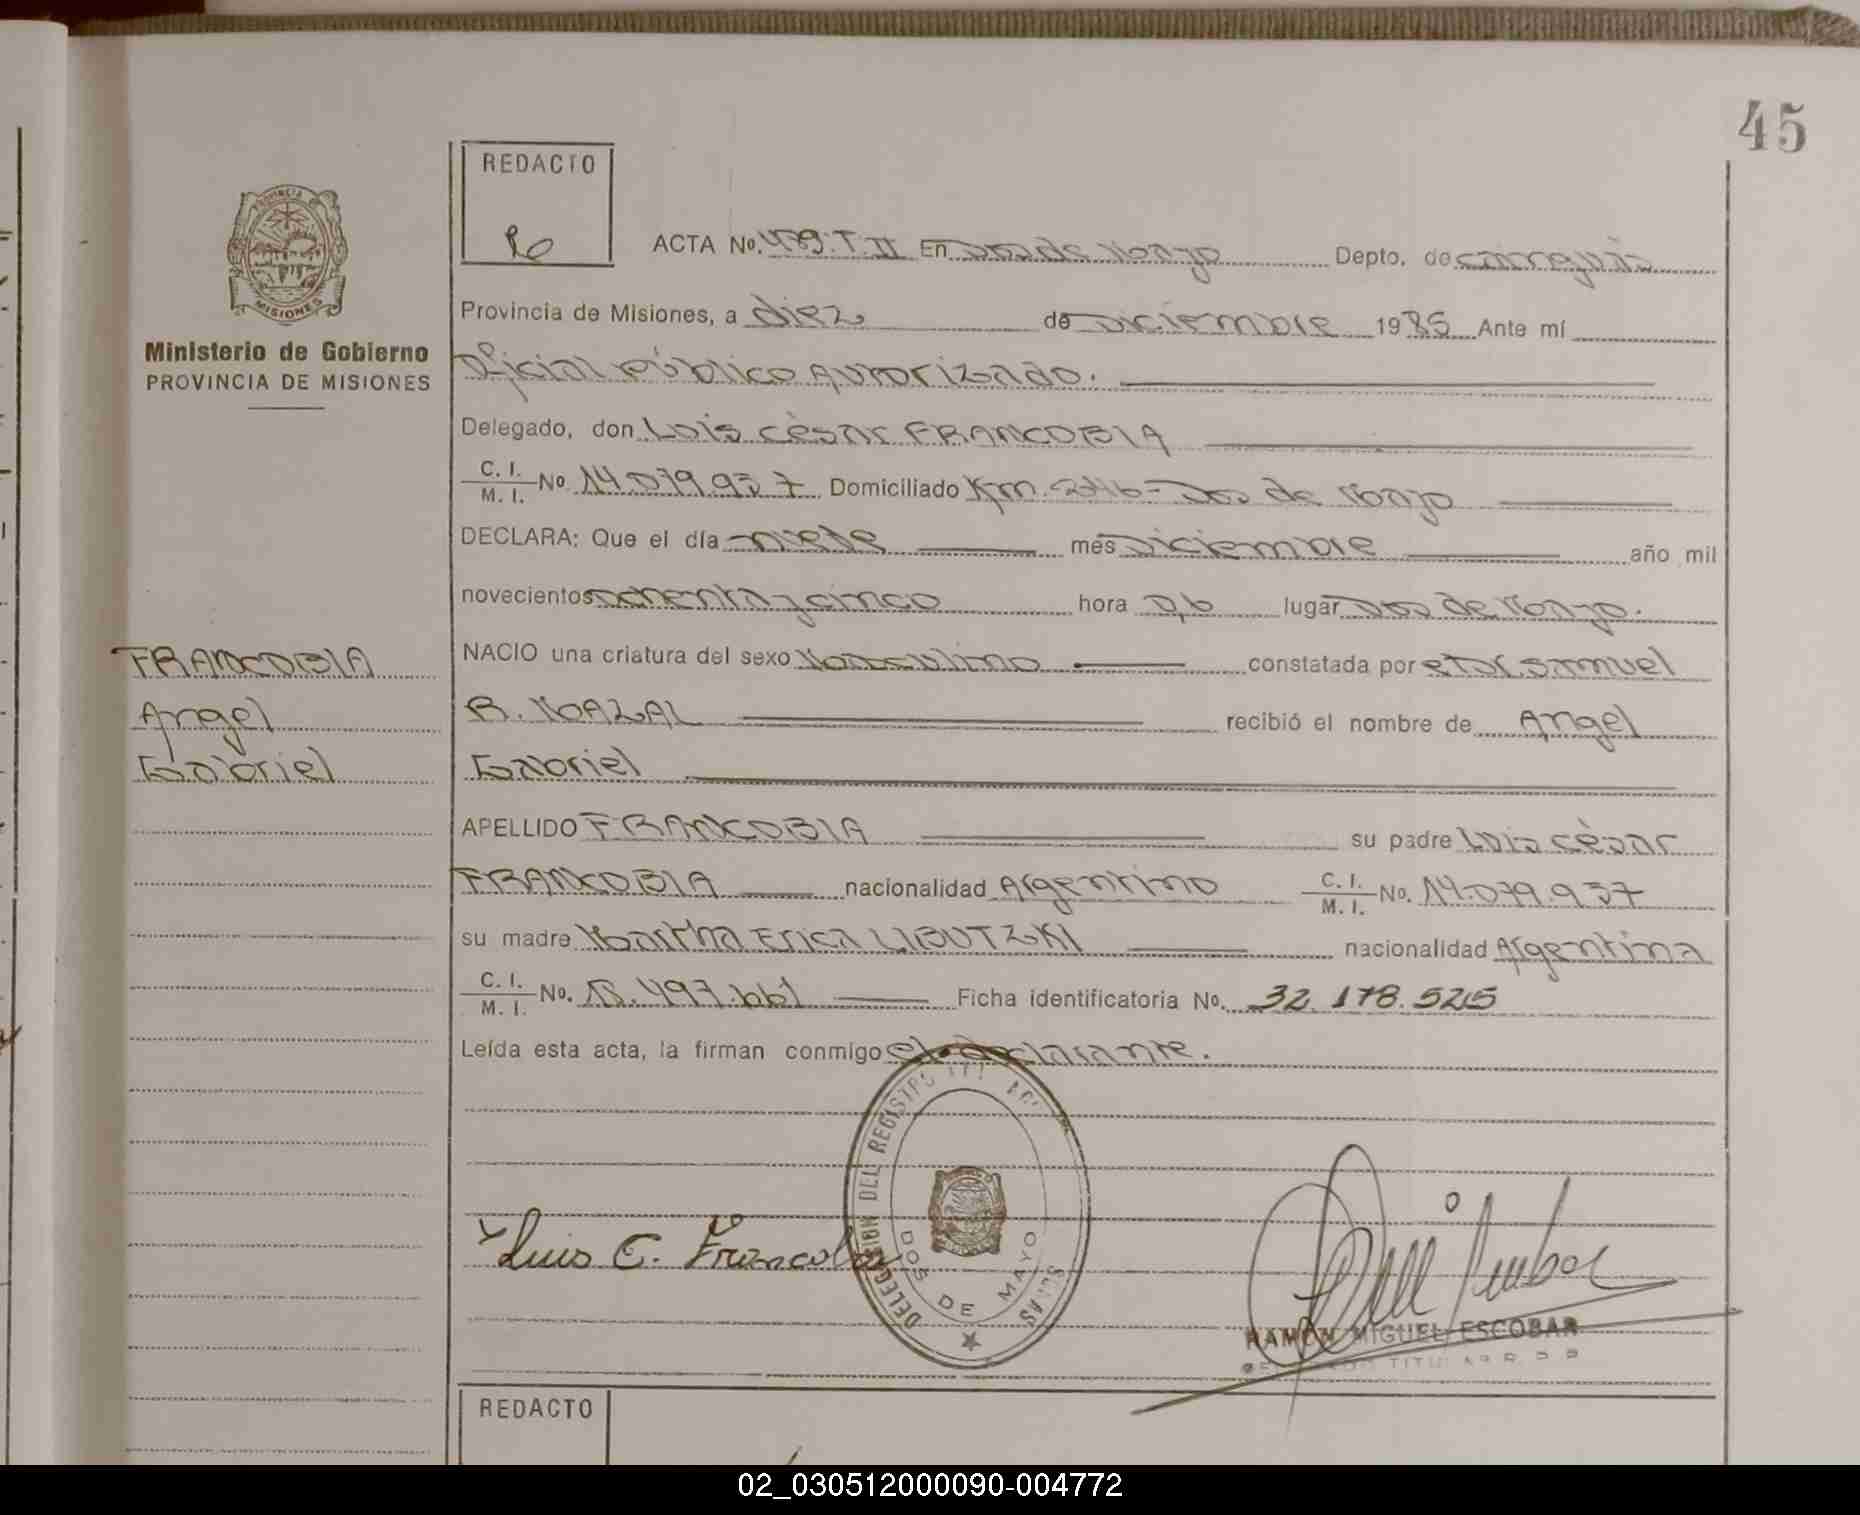 45
REDACTO
ACTA No. 479. T. II En Dos de Mayo Depto. de Cainguás
PROVINCIA DE
MISIONES
Provincia de Misiones, a diez de Diciembre 1985 Ante mí
Ministerio de Gobierno
PROVINCIA DE MISIONES
Oficial público Autorizado.
Delegado, don Luis César FRANCOBIA
C. I. M. I. No 14.079.937 Domiciliado Km. 246- Dos de Mayo
DECLARA: Que el día nueve mes Diciembre año mil
novecientos ochenta y cinco hora 06 lugar Dos de Mayo.
FRANCOBIA
Angel
Gabriel
NACIO una criatura del sexo Masculino constatada por Samuel
R. MAZAL recibió el nombre de Angel
Gabriel
APELLIDO FRANCOBIA su padre Luis César
FRANCOBIA nacionalidad Argentino C. I. M. I. No. 14.079.937
su madre Martha Erica LIBUTZKI nacionalidad Argentina
C. I. M. I. No. 497.661 Ficha identificatoria No. 32.178.525
Leída esta acta, la firman conmigo el declarante.
DELEGACION DEL REGISTRO
DOS DE MAYO
Luis C. Francobia
RAMON MIGUEL ESCOBAR
REDACTO
02_030512000090-004772